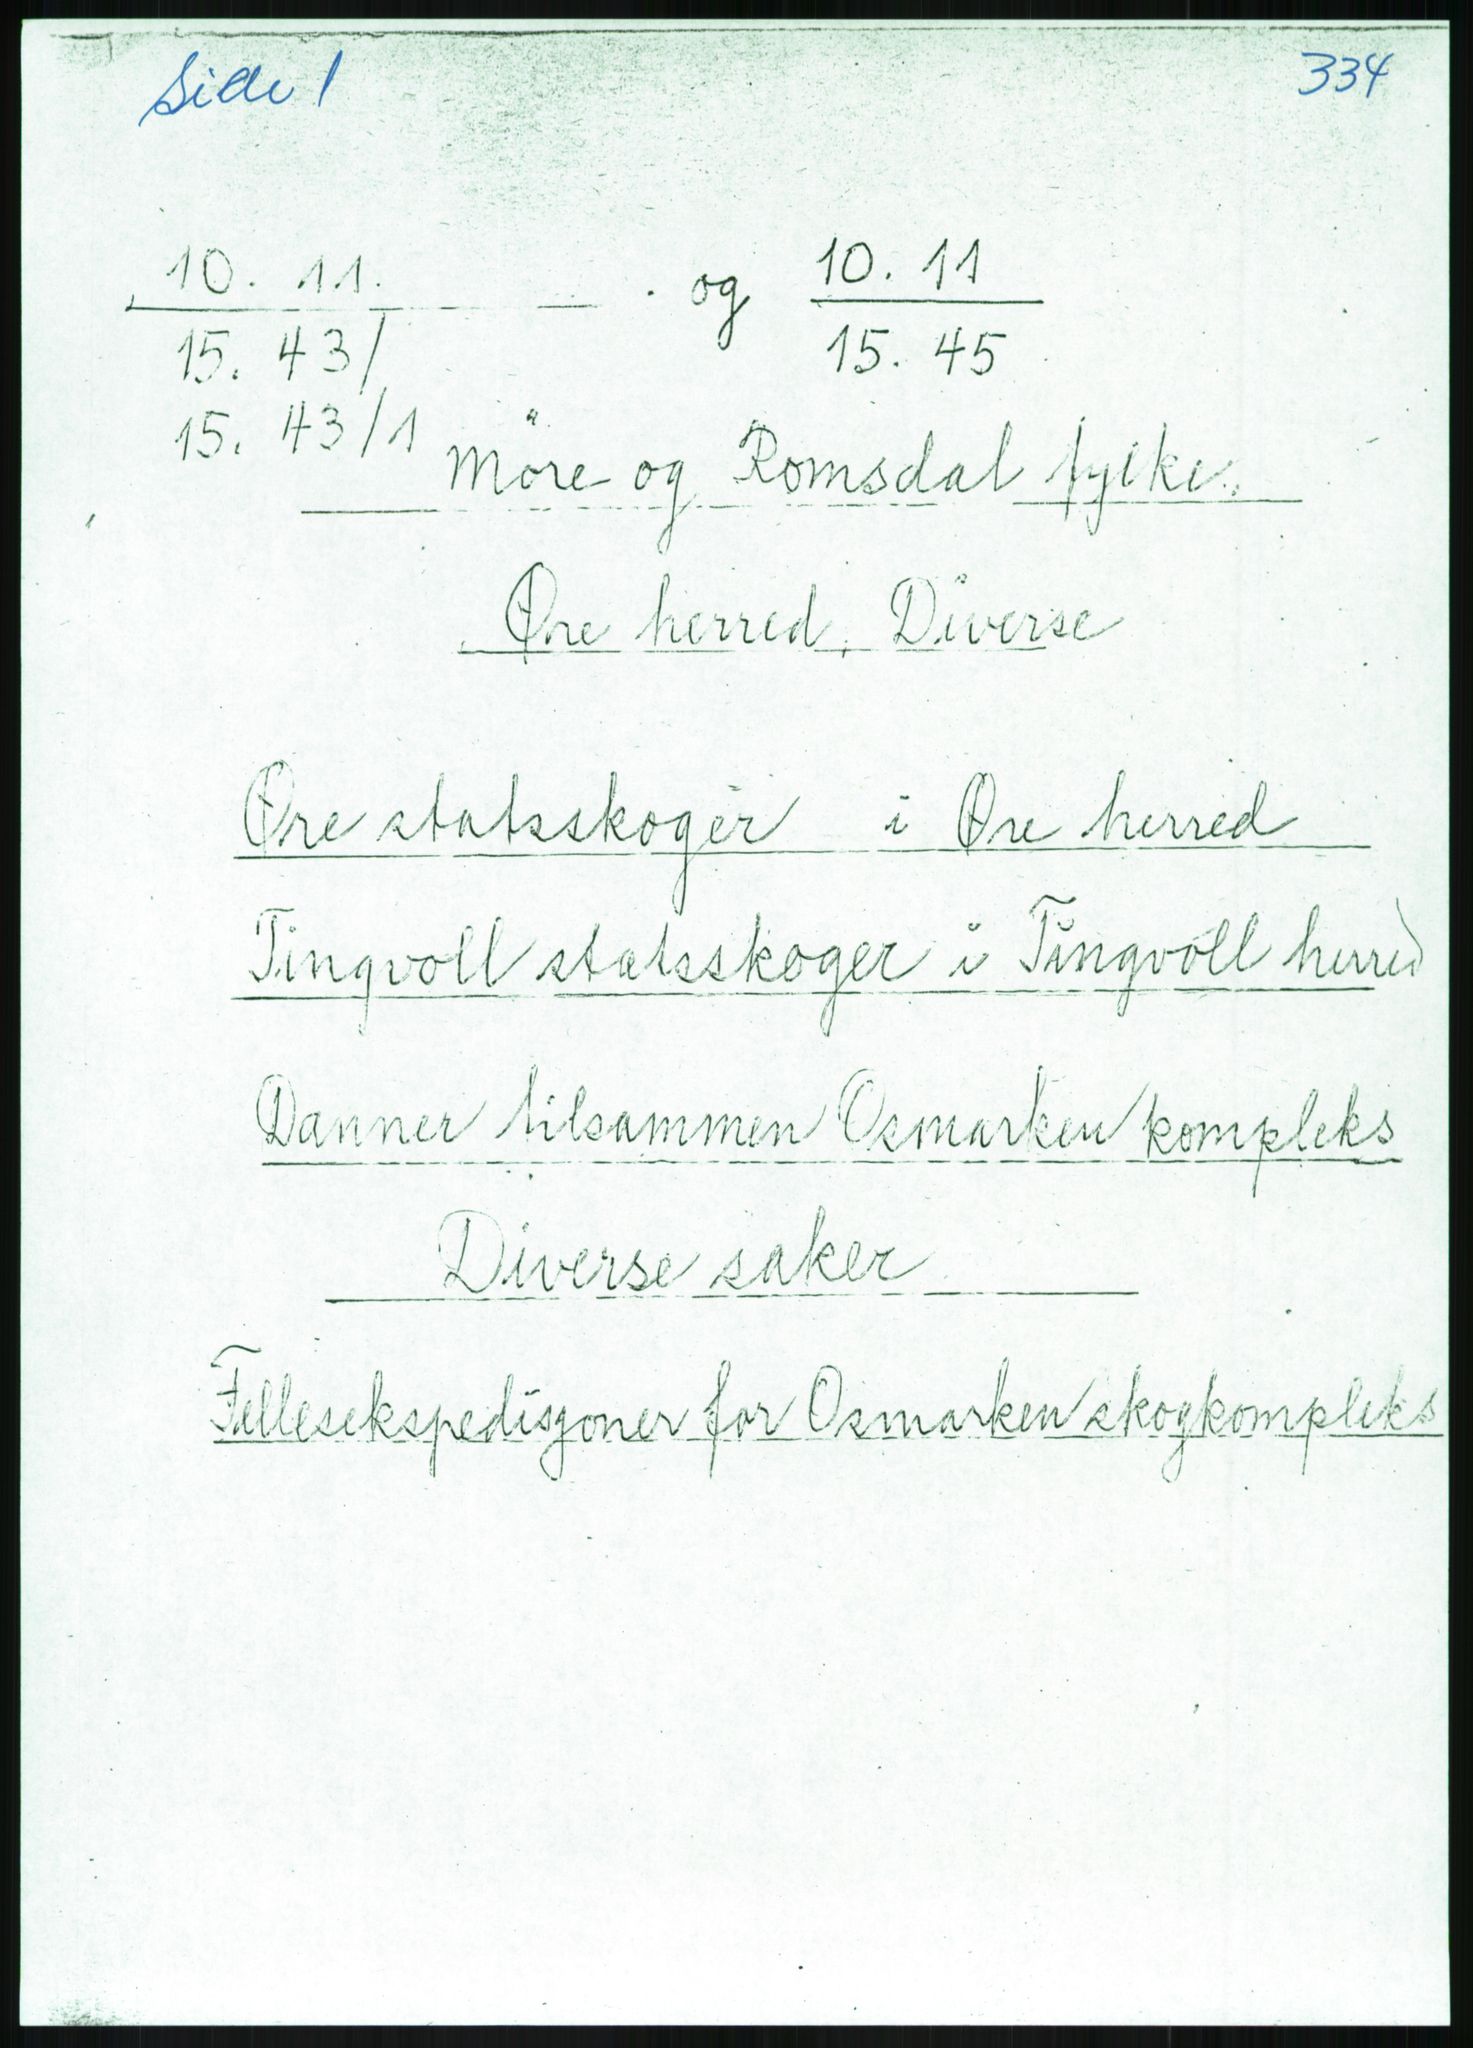 Side 1 334
10. 11. og 10. 11
15. 43/ 15. 45
15. 43/1
Möre og Romsdal fylke.
Øre herred, Diverse
Øre statsskoger i Øre herred
Tingvoll statsskoger i Tingvoll herred
Danner tilsammen Osmarken kompleks
Diverse saker
Fellesekspedisjoner for Osmarken skogkompleks